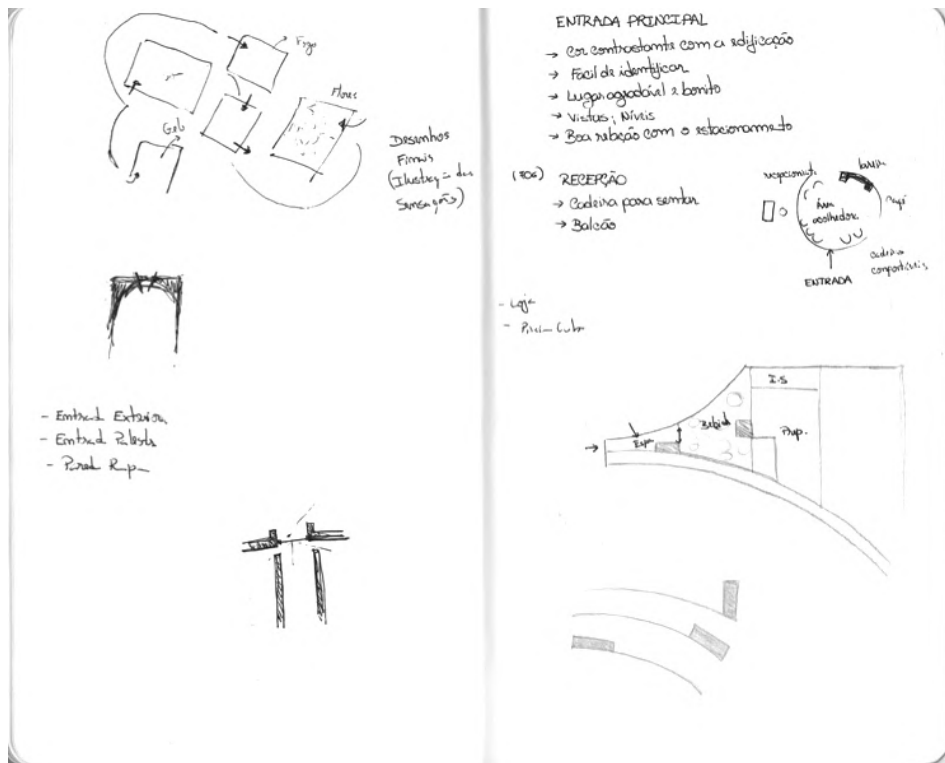 Fogo
Flores
Gelo
Desenhos
Finais
(Ilustração das
Sensações)
- Entrad Exterior
- Entrad
- Pared
ENTRADA PRINCIPAL
→ Cor contrastante com a edificação
→ Fácil de identificar
→ Lugar agradável e bonito
→ Vistas; Níveis
→ Boa relação com o estacionamento
RECEPÇÃO
→ Cadeira para sentar
→ Balcão
recepcionista
balcão
Área
acolhedora
cadeiras
confortáveis
ENTRADA
- Loja
I.S
Prep.